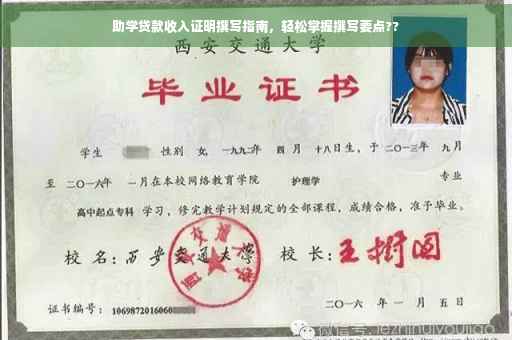 助学贷款收入证明撰写指南，轻松掌握撰写要点??
西安交通大学
毕业证书
学生 性别 女，一九九二年 四月 十八日生，于二〇一三年 九月
至 二〇一六年 一月在本校网络教育学院 护理学 专业
高中起点专科 学习，修完教学计划规定的全部课程，成绩合格，准予毕业。
校 名：西安交通大学 校 长：王树国
西安交通大学
证书编号：1069872016060 二〇一六 年 一 月 五 日
微信号: jezhihuiyoujiao